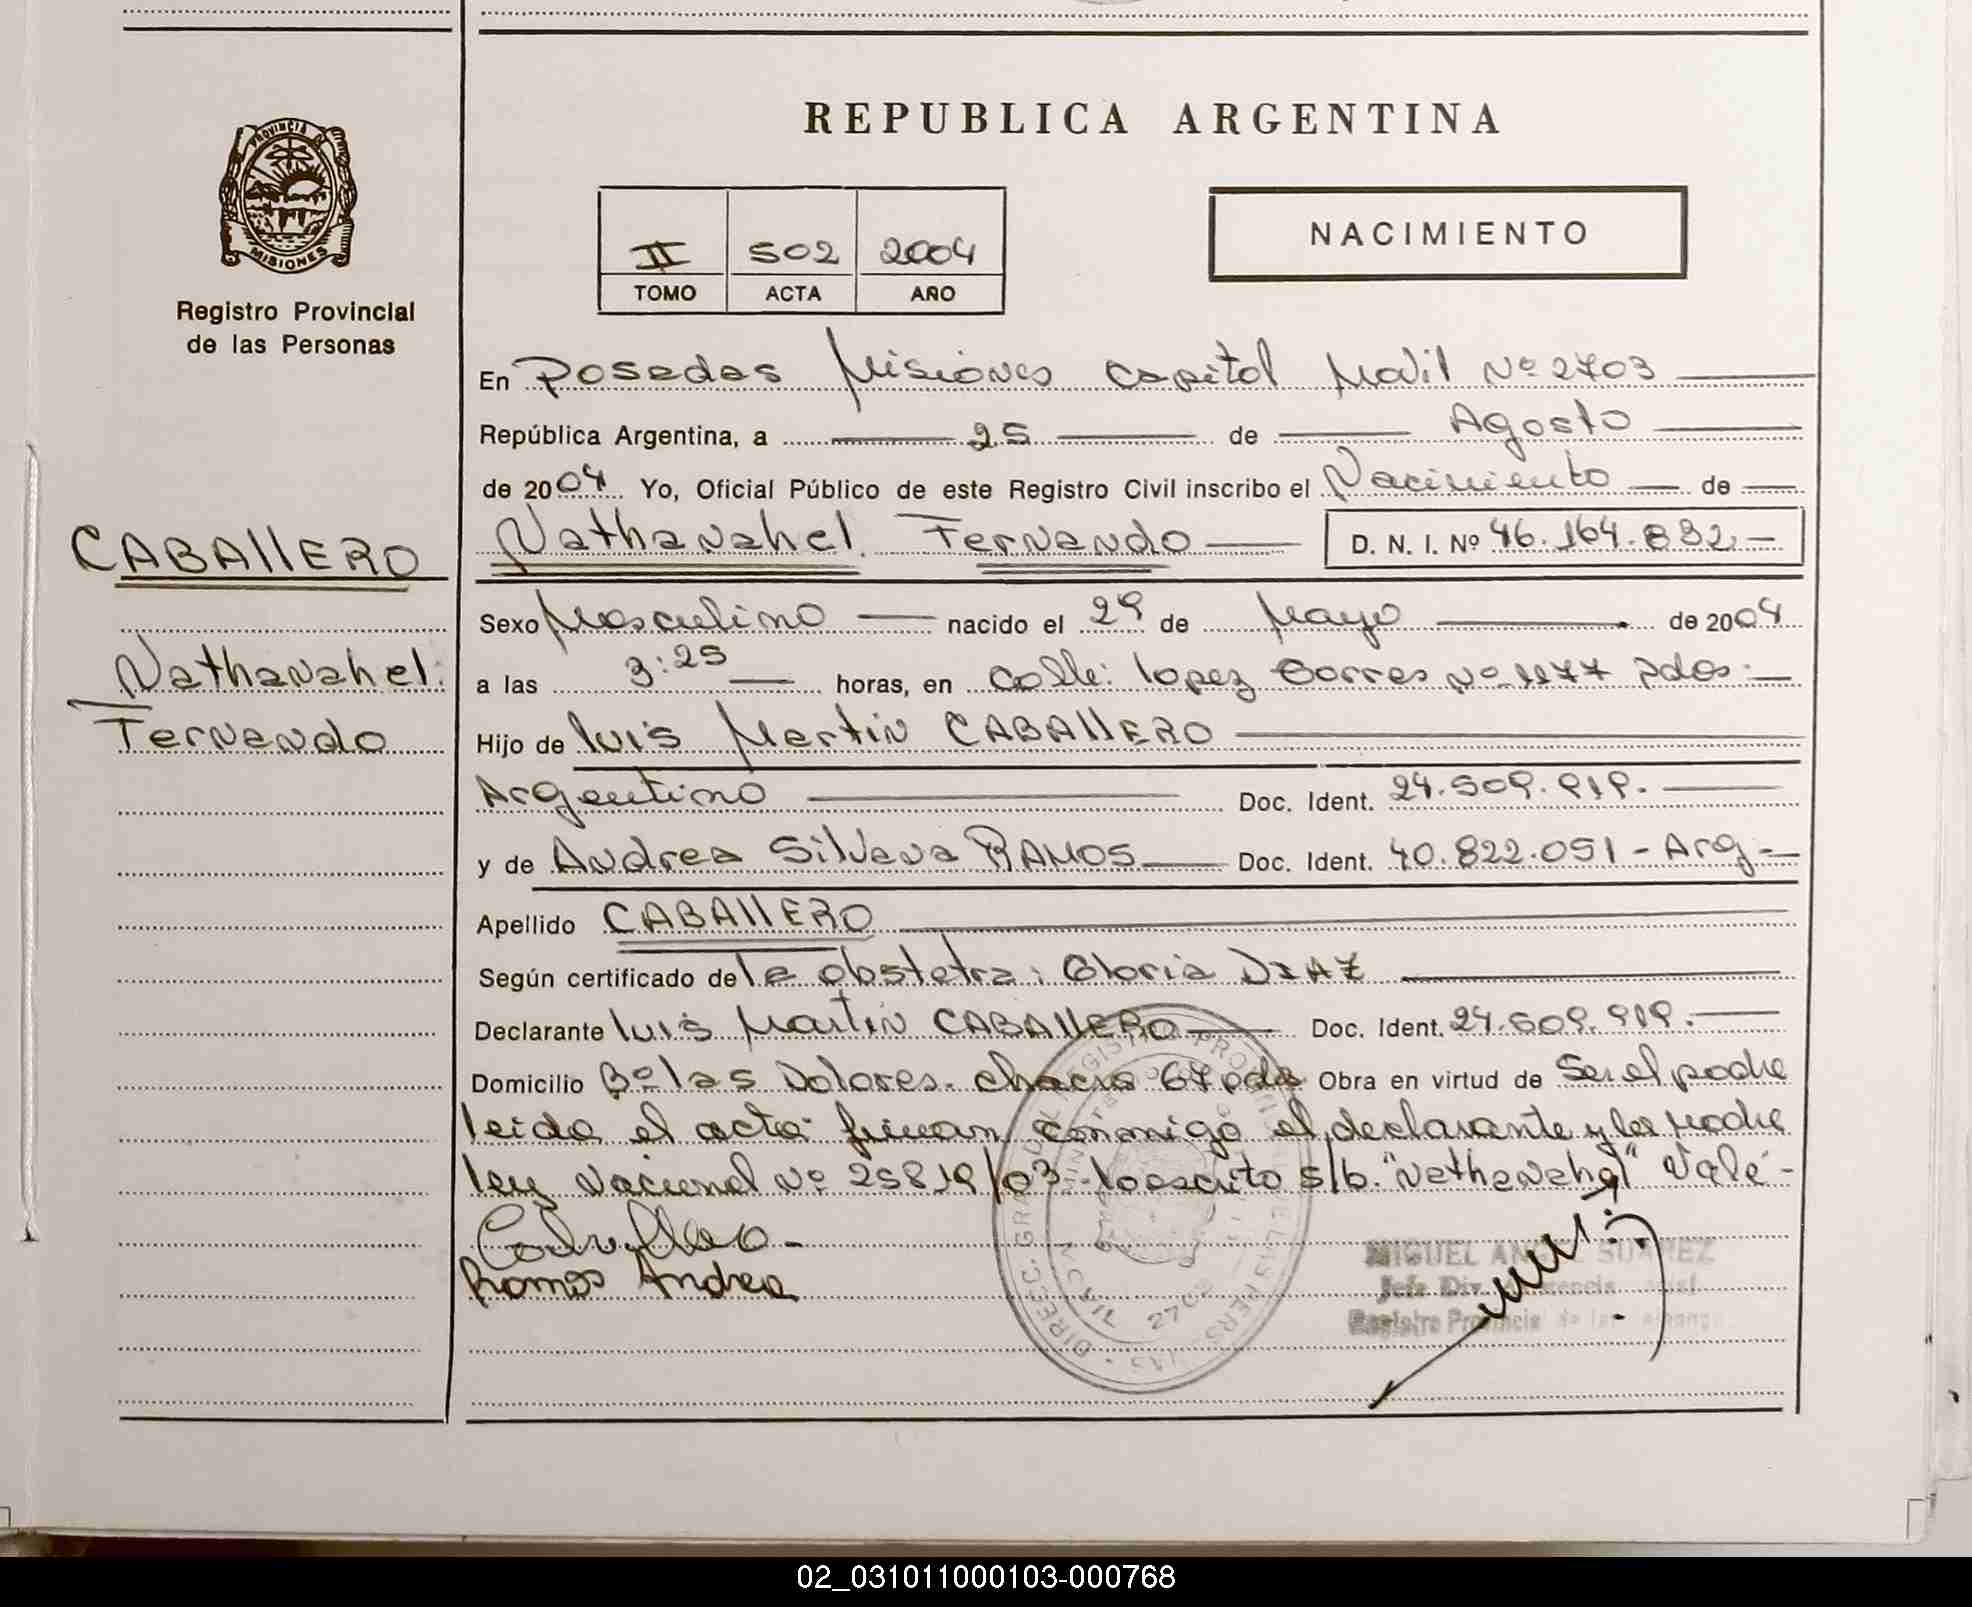 REPUBLICA ARGENTINA
PROVINCIA DE
MISIONES
Registro Provincial
de las Personas
II 502 2004
TOMO ACTA AÑO
NACIMIENTO
En Posadas Misiones Capital Movil Nº 2703
República Argentina, a 25 de Agosto
de 2004 Yo, Oficial Público de este Registro Civil inscribo el Nacimiento de
CABAllERO
Nathanahel Fernando D. N. I. Nº 46.164.832.-
Sexo Masculino nacido el 29 de Mayo de 2004
Nathanahel
Fernando
a las 3:25 horas, en Calle: lopez torres Nº 1177 Pdas.
Hijo de luis Martin CABAllERO
Argentino Doc. Ident. 24.509.919.
y de Andrea Silvana RAMOS Doc. Ident. 40.822.051 - Arg.-
Apellido CABAllERO
Según certificado de la obstetra: Gloria DIAZ
Declarante luis Martin CABAllERO Doc. Ident. 24.509.919.
Domicilio Bº las Dolores. chacra 64 pdas Obra en virtud de Ser el padre
leida el acta firman conmigo el declarante y la madre
ley Nacional Nº 25819/03.- lo escrito s/b. "Nathanahel" Vale.-
Caballero-
Ramos Andrea
MIGUEL ANGEL SUAREZ
Jefe Div.
Registro Provincial de las Personas
02_031011000103-000768